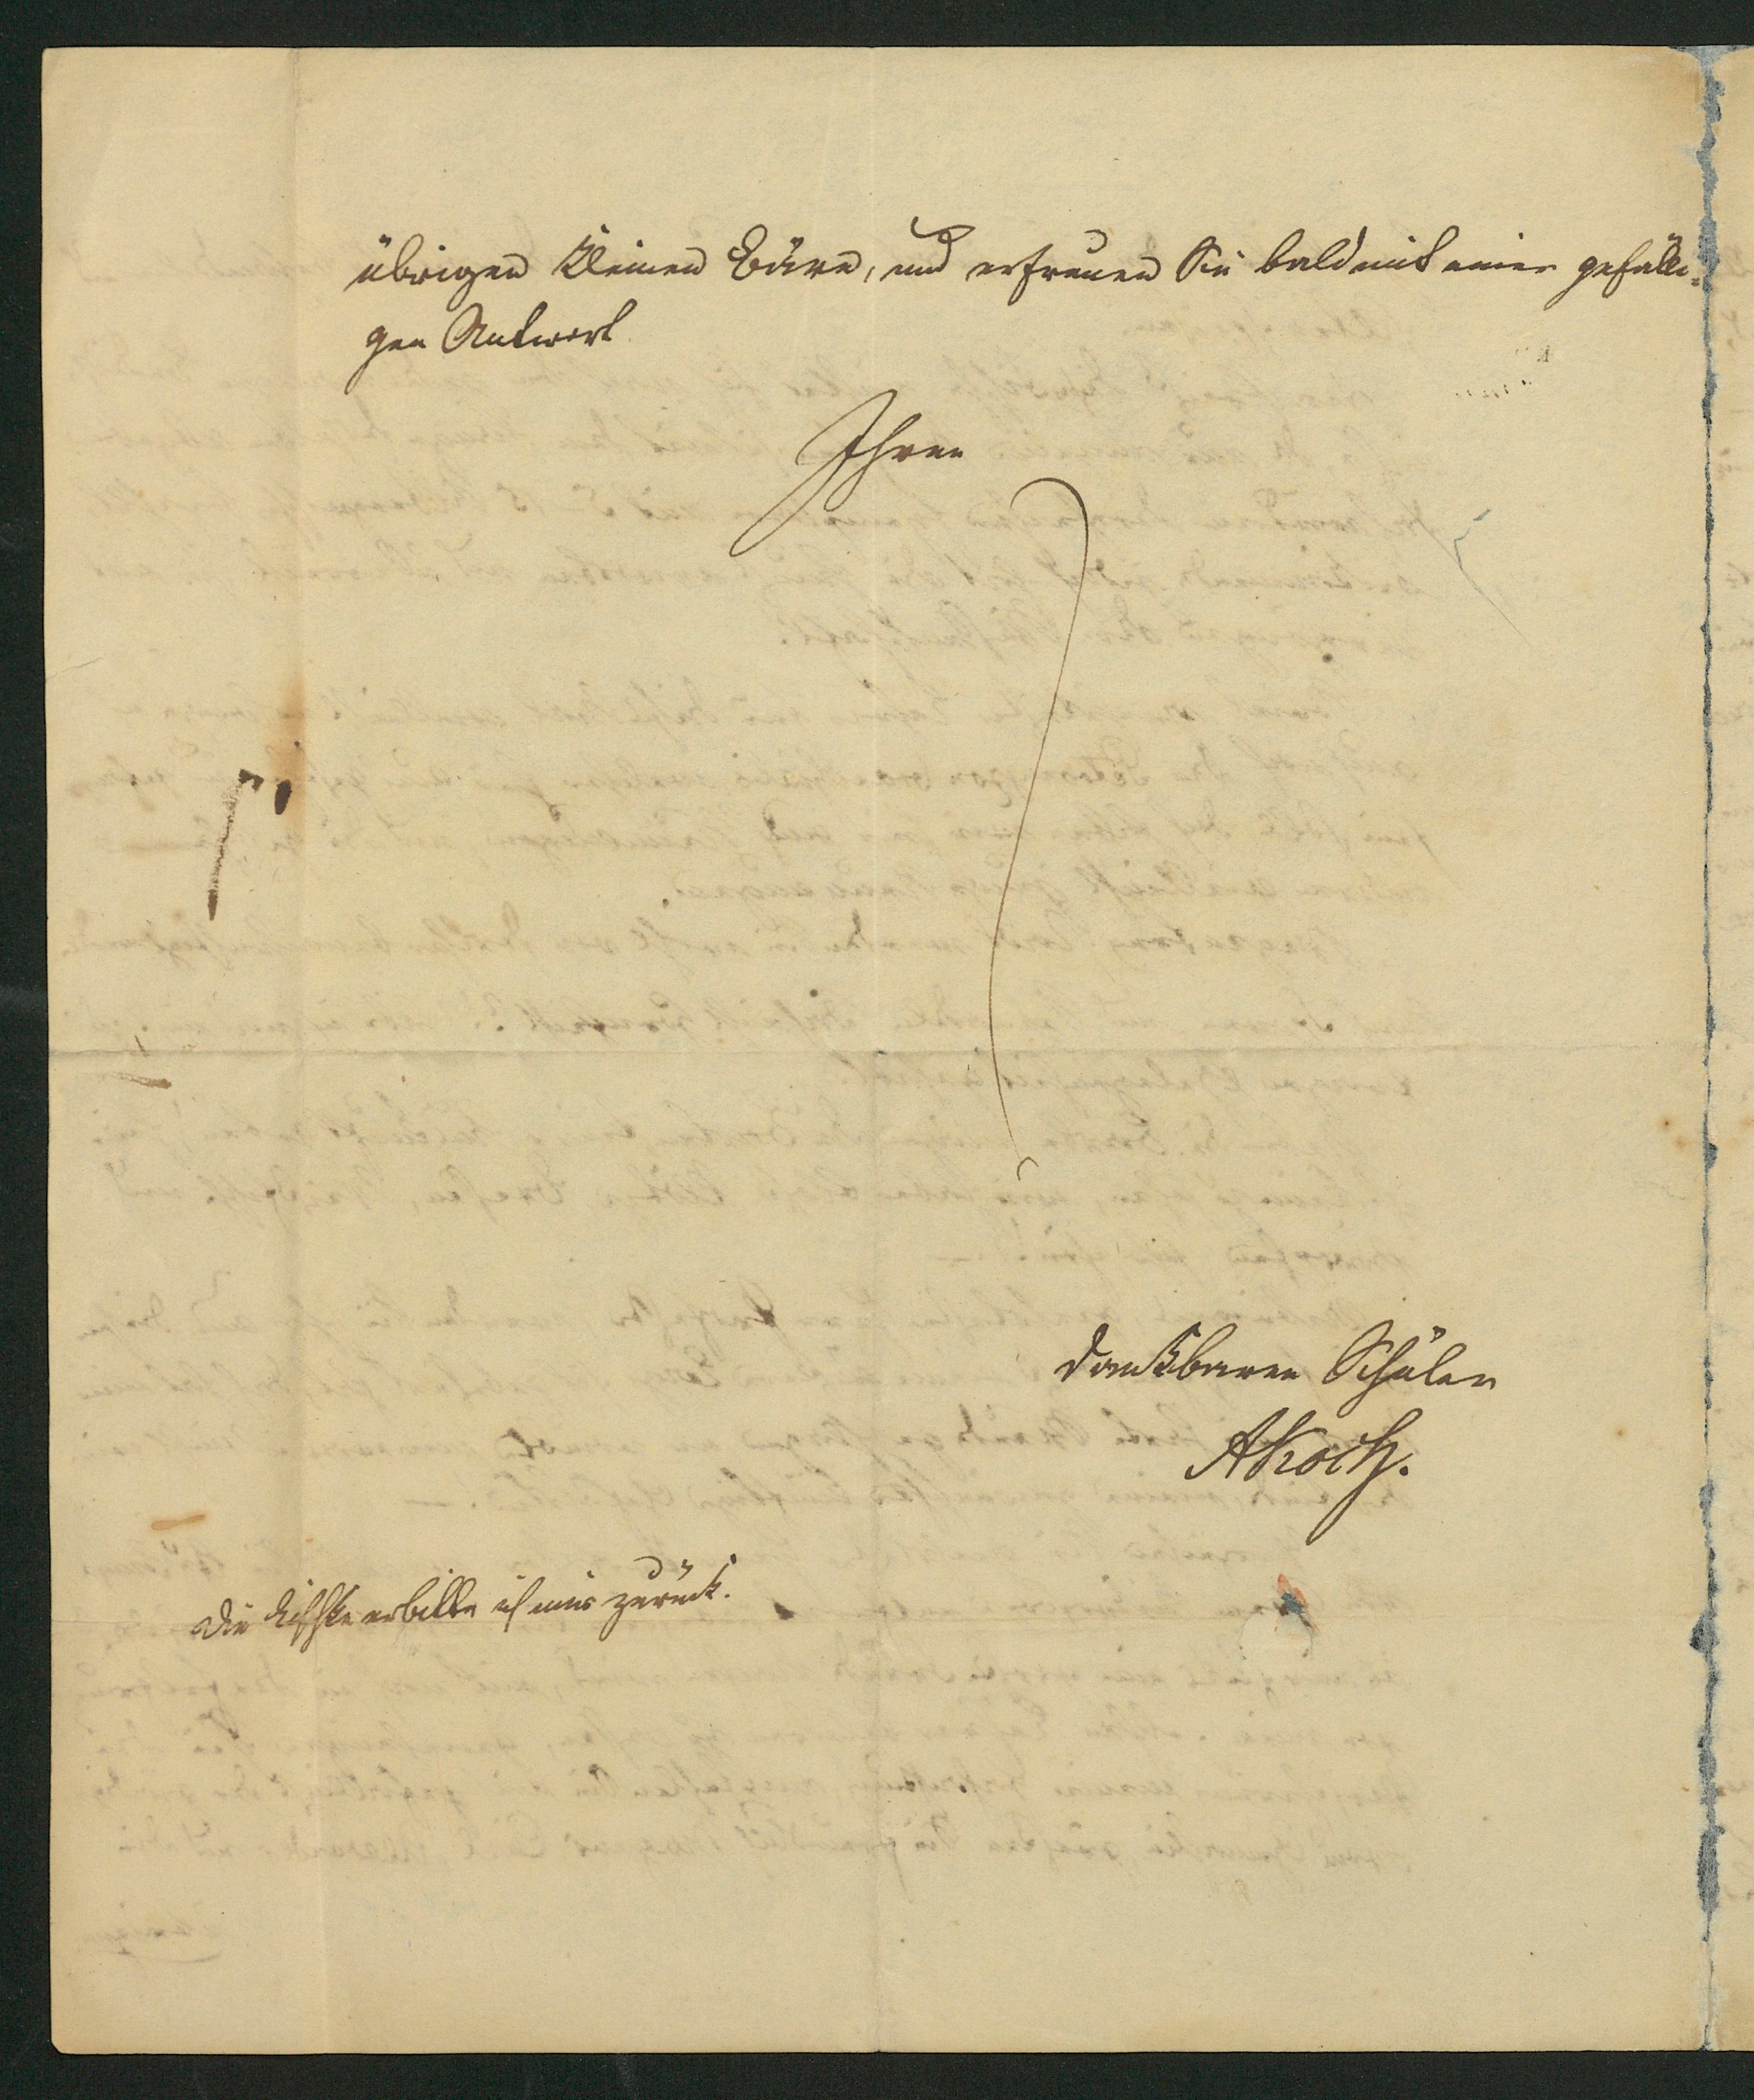 übrigen kleinen Bären, und erfreuen Sie bald mit einer gefälli-
gen Antwort
Ihren
dankbaren Schüler
AKoch.
Die Kiste erbitte ich mir zurück.